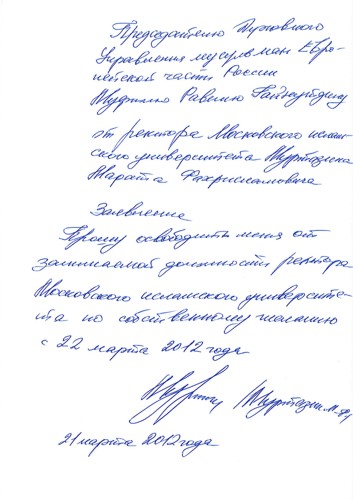 Председателю Духовного
Управления мусульман Евро-
пейской части России
Муфтию Равилю Гайнутдину
от ректора Московского ислам-
ского университета Муртазина
Марата Фахрисламовича
Заявление
Прошу освободить меня от
занимаемой должности ректора
Московского исламского университе-
та по собственному желанию
с 22 марта 2012 года
/Муртазин М.Ф./
21 марта 2012 года